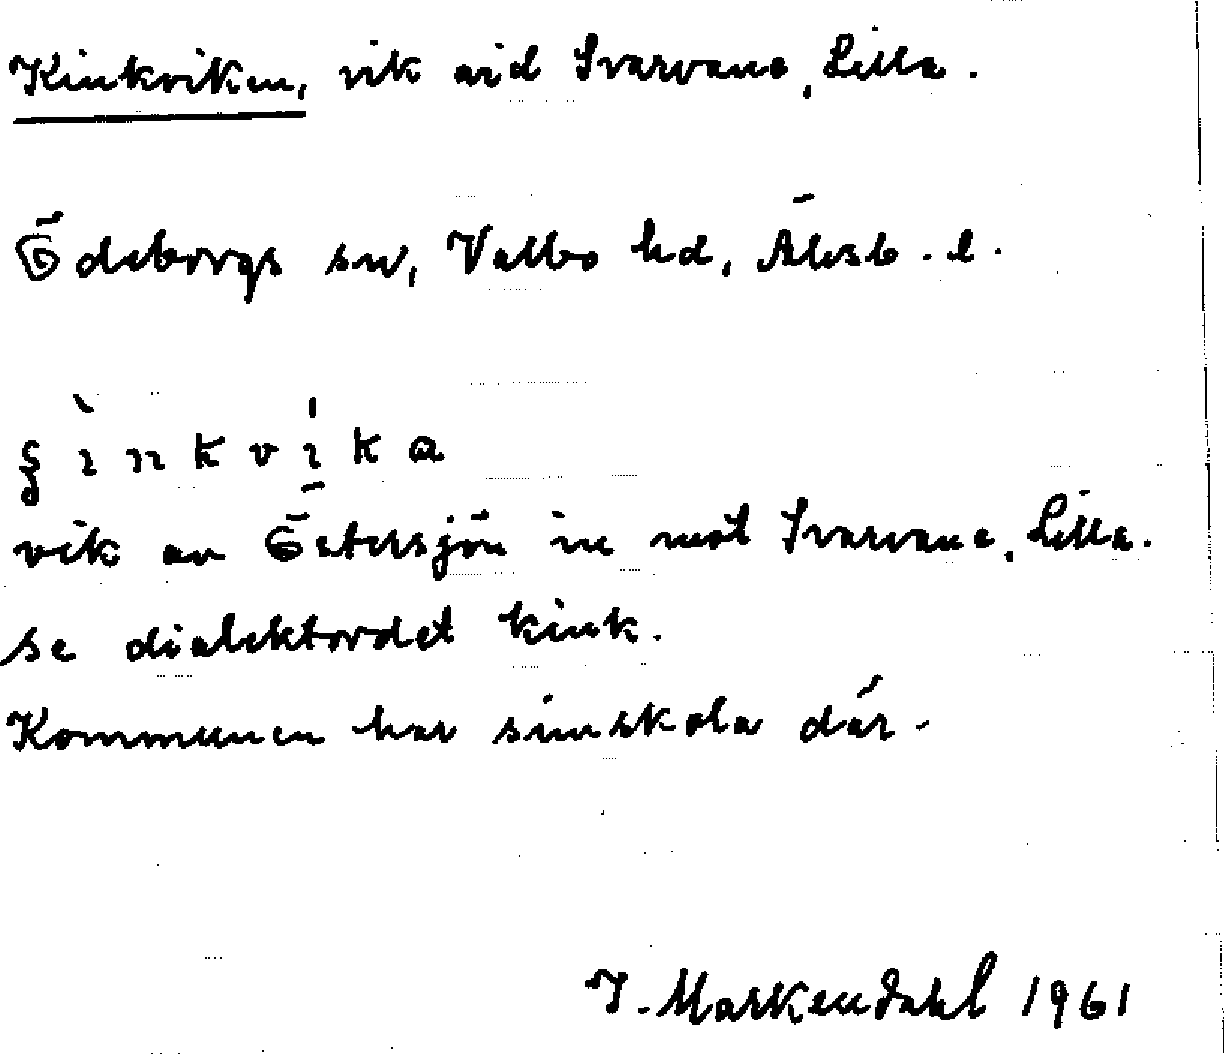 Kinkviken, vik vid Svarvane, Lilla.
Ödeborgs sn, Valbo hd, Älvsb. l.
ʂìnkvíka
vik av Östersjön in mot Svarvane, Lilla.
se dialektordet kink.
Kommunen har simskola där.
I. Markendahl 1961